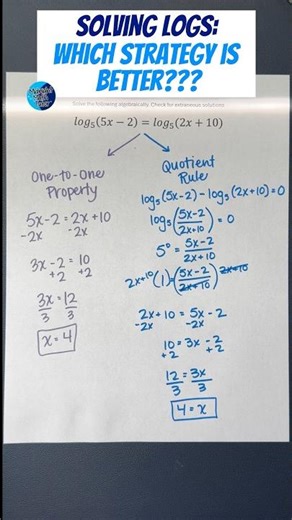 SOLVING LOGS:
WHICH STRATEGY IS
BETTER???
Solve the following algebraically. Check for extraneous solutions.
log₅(5x − 2) = log₅(2x + 10)
One-to-One
Property
5x-2 = 2x+10
-2x -2x
3x-2 = 10
+2 +2
3x = 12
3 3
x = 4
Quotient
Rule
log₅(5x-2) - log₅(2x+10) = 0
log₅(5x-2/2x+10) = 0
5⁰ = 5x-2/2x+10
2x+10(1) = (5x-2/2x+10) 2x+10
2x+10 = 5x-2
-2x -2x
10 = 3x-2
+2 +2
12 = 3x
3 3
4 = x